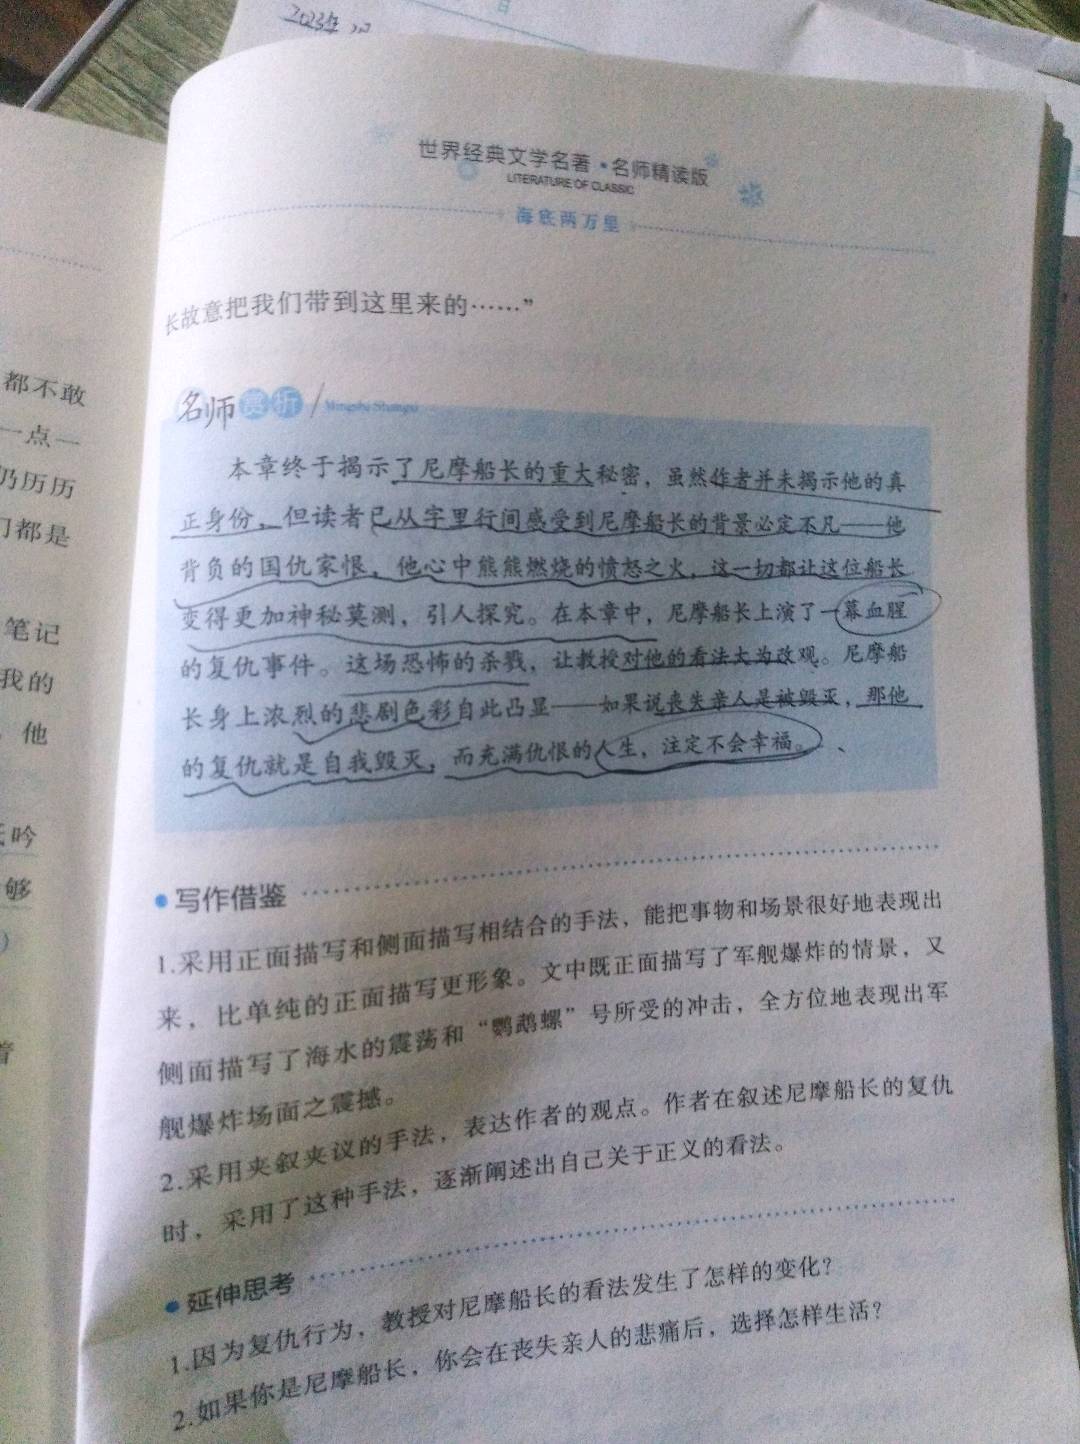 2023年
日
都不敢
一点一
仍历历
门都是
笔记
我的
他
吟
够
着
世界经典文学名著·名师精读版
LITERATURE OF CLASSIC
海底两万里
长故意把我们带到这里来的……”
名师赏析/Mingshi Shangxi
本章终于揭示了尼摩船长的重大秘密，虽然作者并未揭示他的真
正身份，但读者已从字里行间感受到尼摩船长的背景必定不凡——他
背负的国仇家恨，他心中熊熊燃烧的愤怒之火，这一切都让这位船长
变得更加神秘莫测，引人探究。在本章中，尼摩船长上演了一幕血腥
的复仇事件。这场恐怖的杀戮，让教授对他的看法大为改观。尼摩船
长身上浓烈的悲剧色彩自此凸显——如果说丧失亲人是被毁灭，那他
的复仇就是自我毁灭，而充满仇恨的人生，注定不会幸福。
写作借鉴
1.采用正面描写和侧面描写相结合的手法，能把事物和场景很好地表现出
来，比单纯的正面描写更形象。文中既正面描写了军舰爆炸的情景，又
侧面描写了海水的震荡和“鹦鹉螺”号所受的冲击，全方位地表现出军
舰爆炸场面之震撼。
2.采用夹叙夹议的手法，表达作者的观点。作者在叙述尼摩船长的复仇
时，采用了这种手法，逐渐阐述出自己关于正义的看法。
延伸思考
1.因为复仇行为，教授对尼摩船长的看法发生了怎样的变化？
2.如果你是尼摩船长，你会在丧失亲人的悲痛后，选择怎样生活？